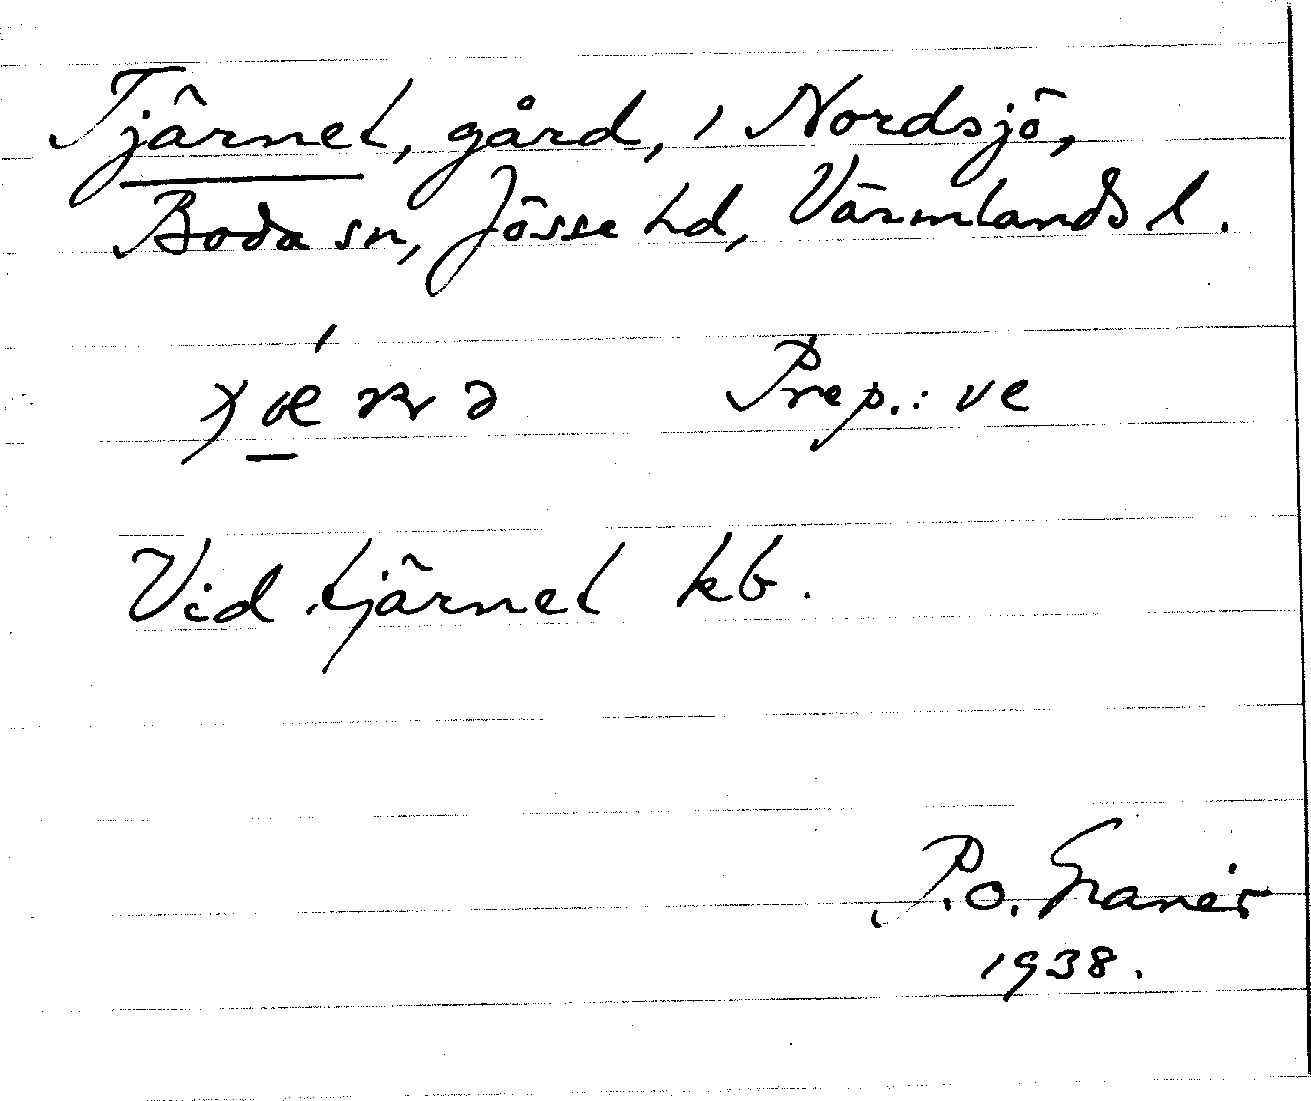 Tjärnet, gård, i Nordsjö,
Boda sn, Jösse hd, Värmlands l.
Prep.: ve
Vid tjärnet kb.
P.O. Granér
1938.